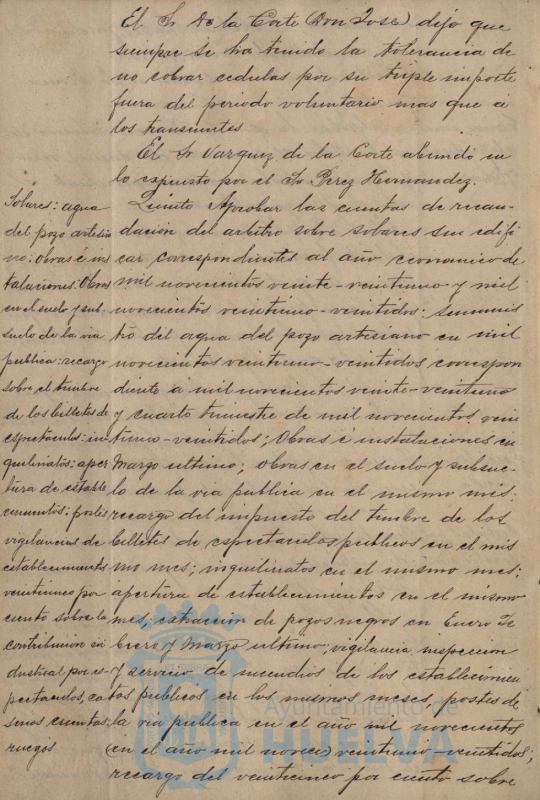 El Sr De la Corte (Don Jose) dijo que
siempre se ha tenido la tolerancia de
no cobrar cedulas por su triple importe
fuera del periodo voluntario mas que á
los transeuntes
El Sr Vazquez de la Corte abundó en
lo expuesto por el Sr Perez Hernandez.
Quinto Aprobar las cuentas de recau-
dacion del arbitro sobre solares sin edifi
car, correspondientes al año economico de
mil novecientos veinte-veintiuno y mil
novecientos veintiuno-veintidos: Suminis
tro del agua del pozo artesiano en mil
novecientos veintiuno-veintidos correspon
diente á mil novecientos veinte-veintiuno
y cuarto trimestre de mil novecientos vein
tiuno-veintidos; Obras e instalaciones en
Marzo ultimo; obras en el suelo y subsue-
lo de la via publica en el mismo mes:
recargo del impuesto del timbre de los
billetes de espectaculos publicos en el mis
mo mes; inquilinatos en el mismo mes;
apertura de establecimientos en el mismo
mes; extraccion de pozos negros en Enero Fe
brero y Marzo ultimo; vigilancia inspeccion
y servicio de incendios de los establecimien
tos publicos en los mismos meses, postes de
la via publica en el año mil novecientos
(en el año mil novece) veintiuno-veintidos;
recargo del veinticinco por ciento sobre
Solares: agua
del pozo artesia
no: obras é ins
talaciones: Obras
en el suelo y sub
suelo de la via
publica: recargo
sobre el timbre
de los billetes de
espectaculos: in
quilinatos: aper
tura de estable
cimientos: postes
vigilancias de
establecimientos
veinticinco por
ciento sobre la
contribucion in
dustrial por es-
pectaculos, ca
sinos cuentas:
ruegos
Ayuntamiento de
HUELVA